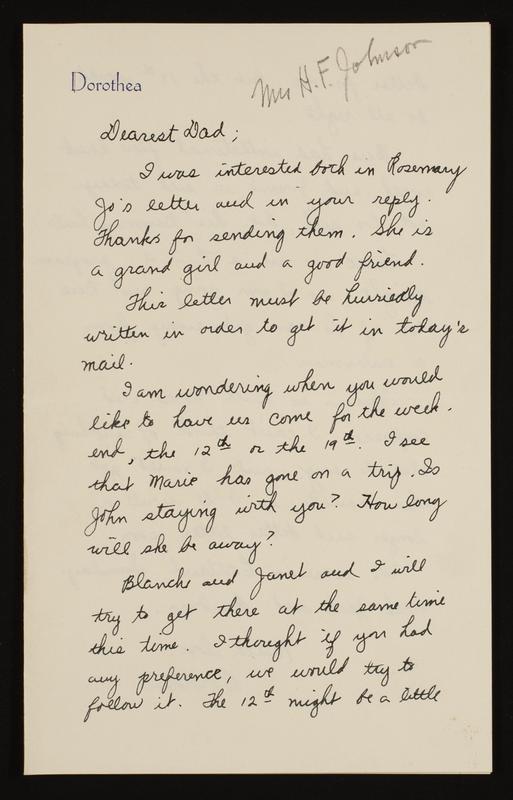 Dorothea
Mrs H. F. Johnson
Dearest Dad;
I was interested both in Rosemary
Jo's letter and in your reply.
Thanks for sending them. She is
a grand girl and a good friend.
This letter must be hurriedly
written in order to get it in today's
mail.
I am wondering when you would
like to have us come for the week-
end, the 12th or the 19th. I see
that Marie has gone on a trip. Is
John staying with you? How long
will she be away?
Blanche and Janet and I will
try to get there at the same time
this time. I thought if you had
any preference, we would try to
follow it. The 12th might be a little